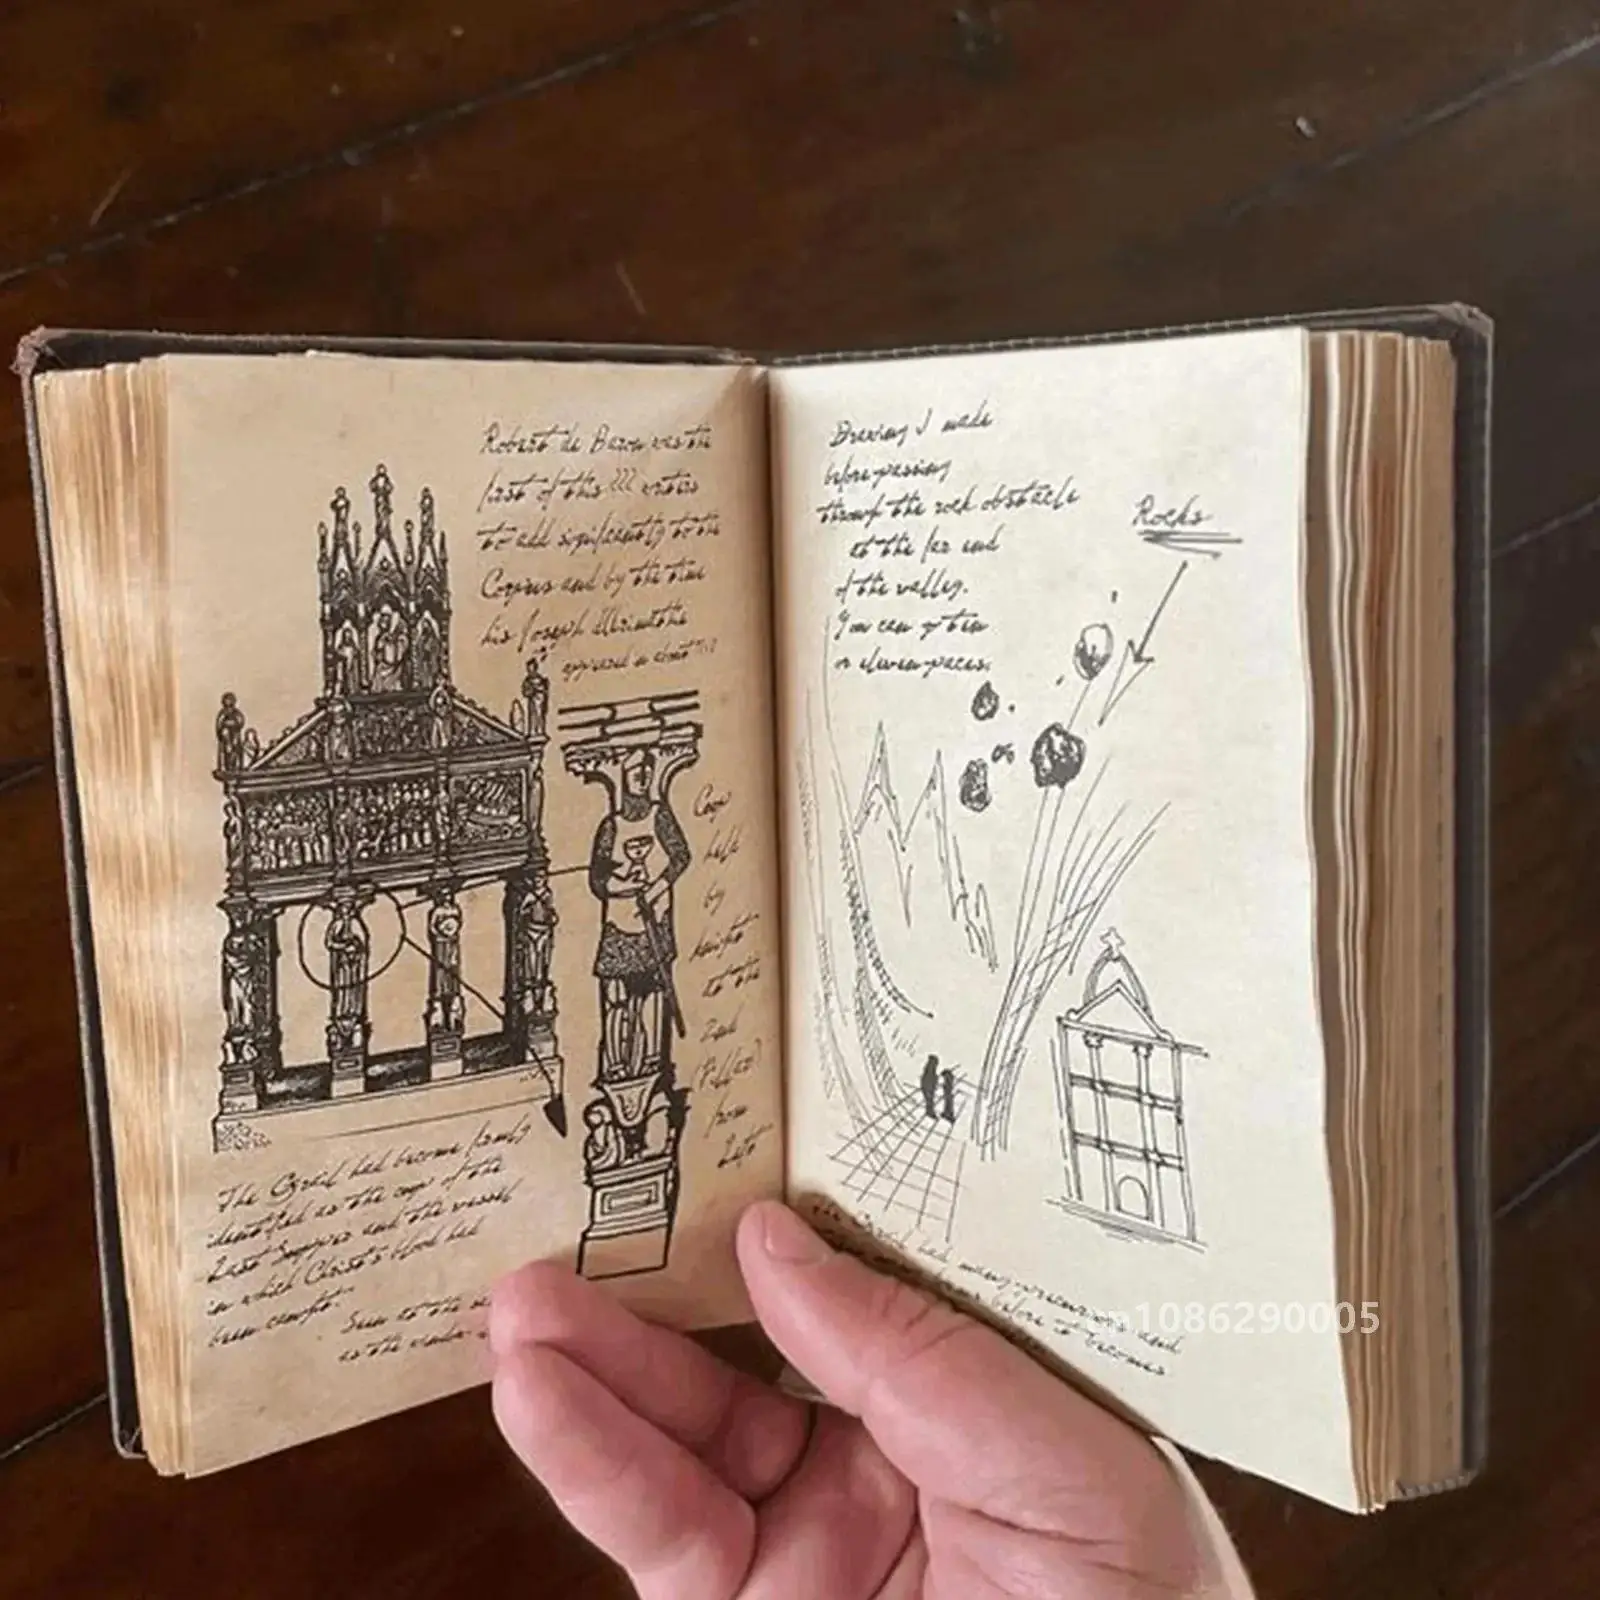 Robert de Baron was the
first of this ??? writers
to add significantly to the
Corpus and by the time
his Joseph
appeared in about
Cup
held
by
knight
to the
(Pillar)
from
Left
The Grail had become firmly
identified as the cup of the
Last Supper and the vessel
in which Christ's blood had
been caught.
Seen to the
as the
Drawing I made
before passing
through the rock obstacle
at the far end
of the valley.
You can go ten
or eleven paces.
Rocks
The Grail had many precursors and
before it becomes
cn1086290005